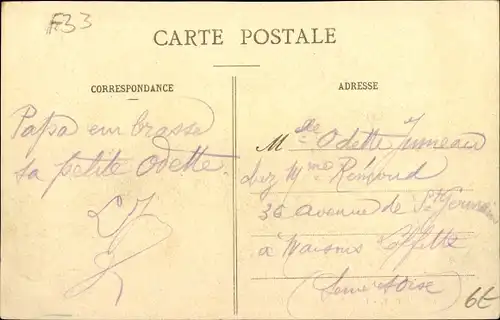 F33
CARTE POSTALE
CORRESPONDANCE
ADRESSE
Papa embrasse
sa petite Odette.
LJ
Mlle Odette Jumeau
chez Mme Rémond
36 avenue de St Germain
à Maisons Laffitte
(Seine et Oise)
6E